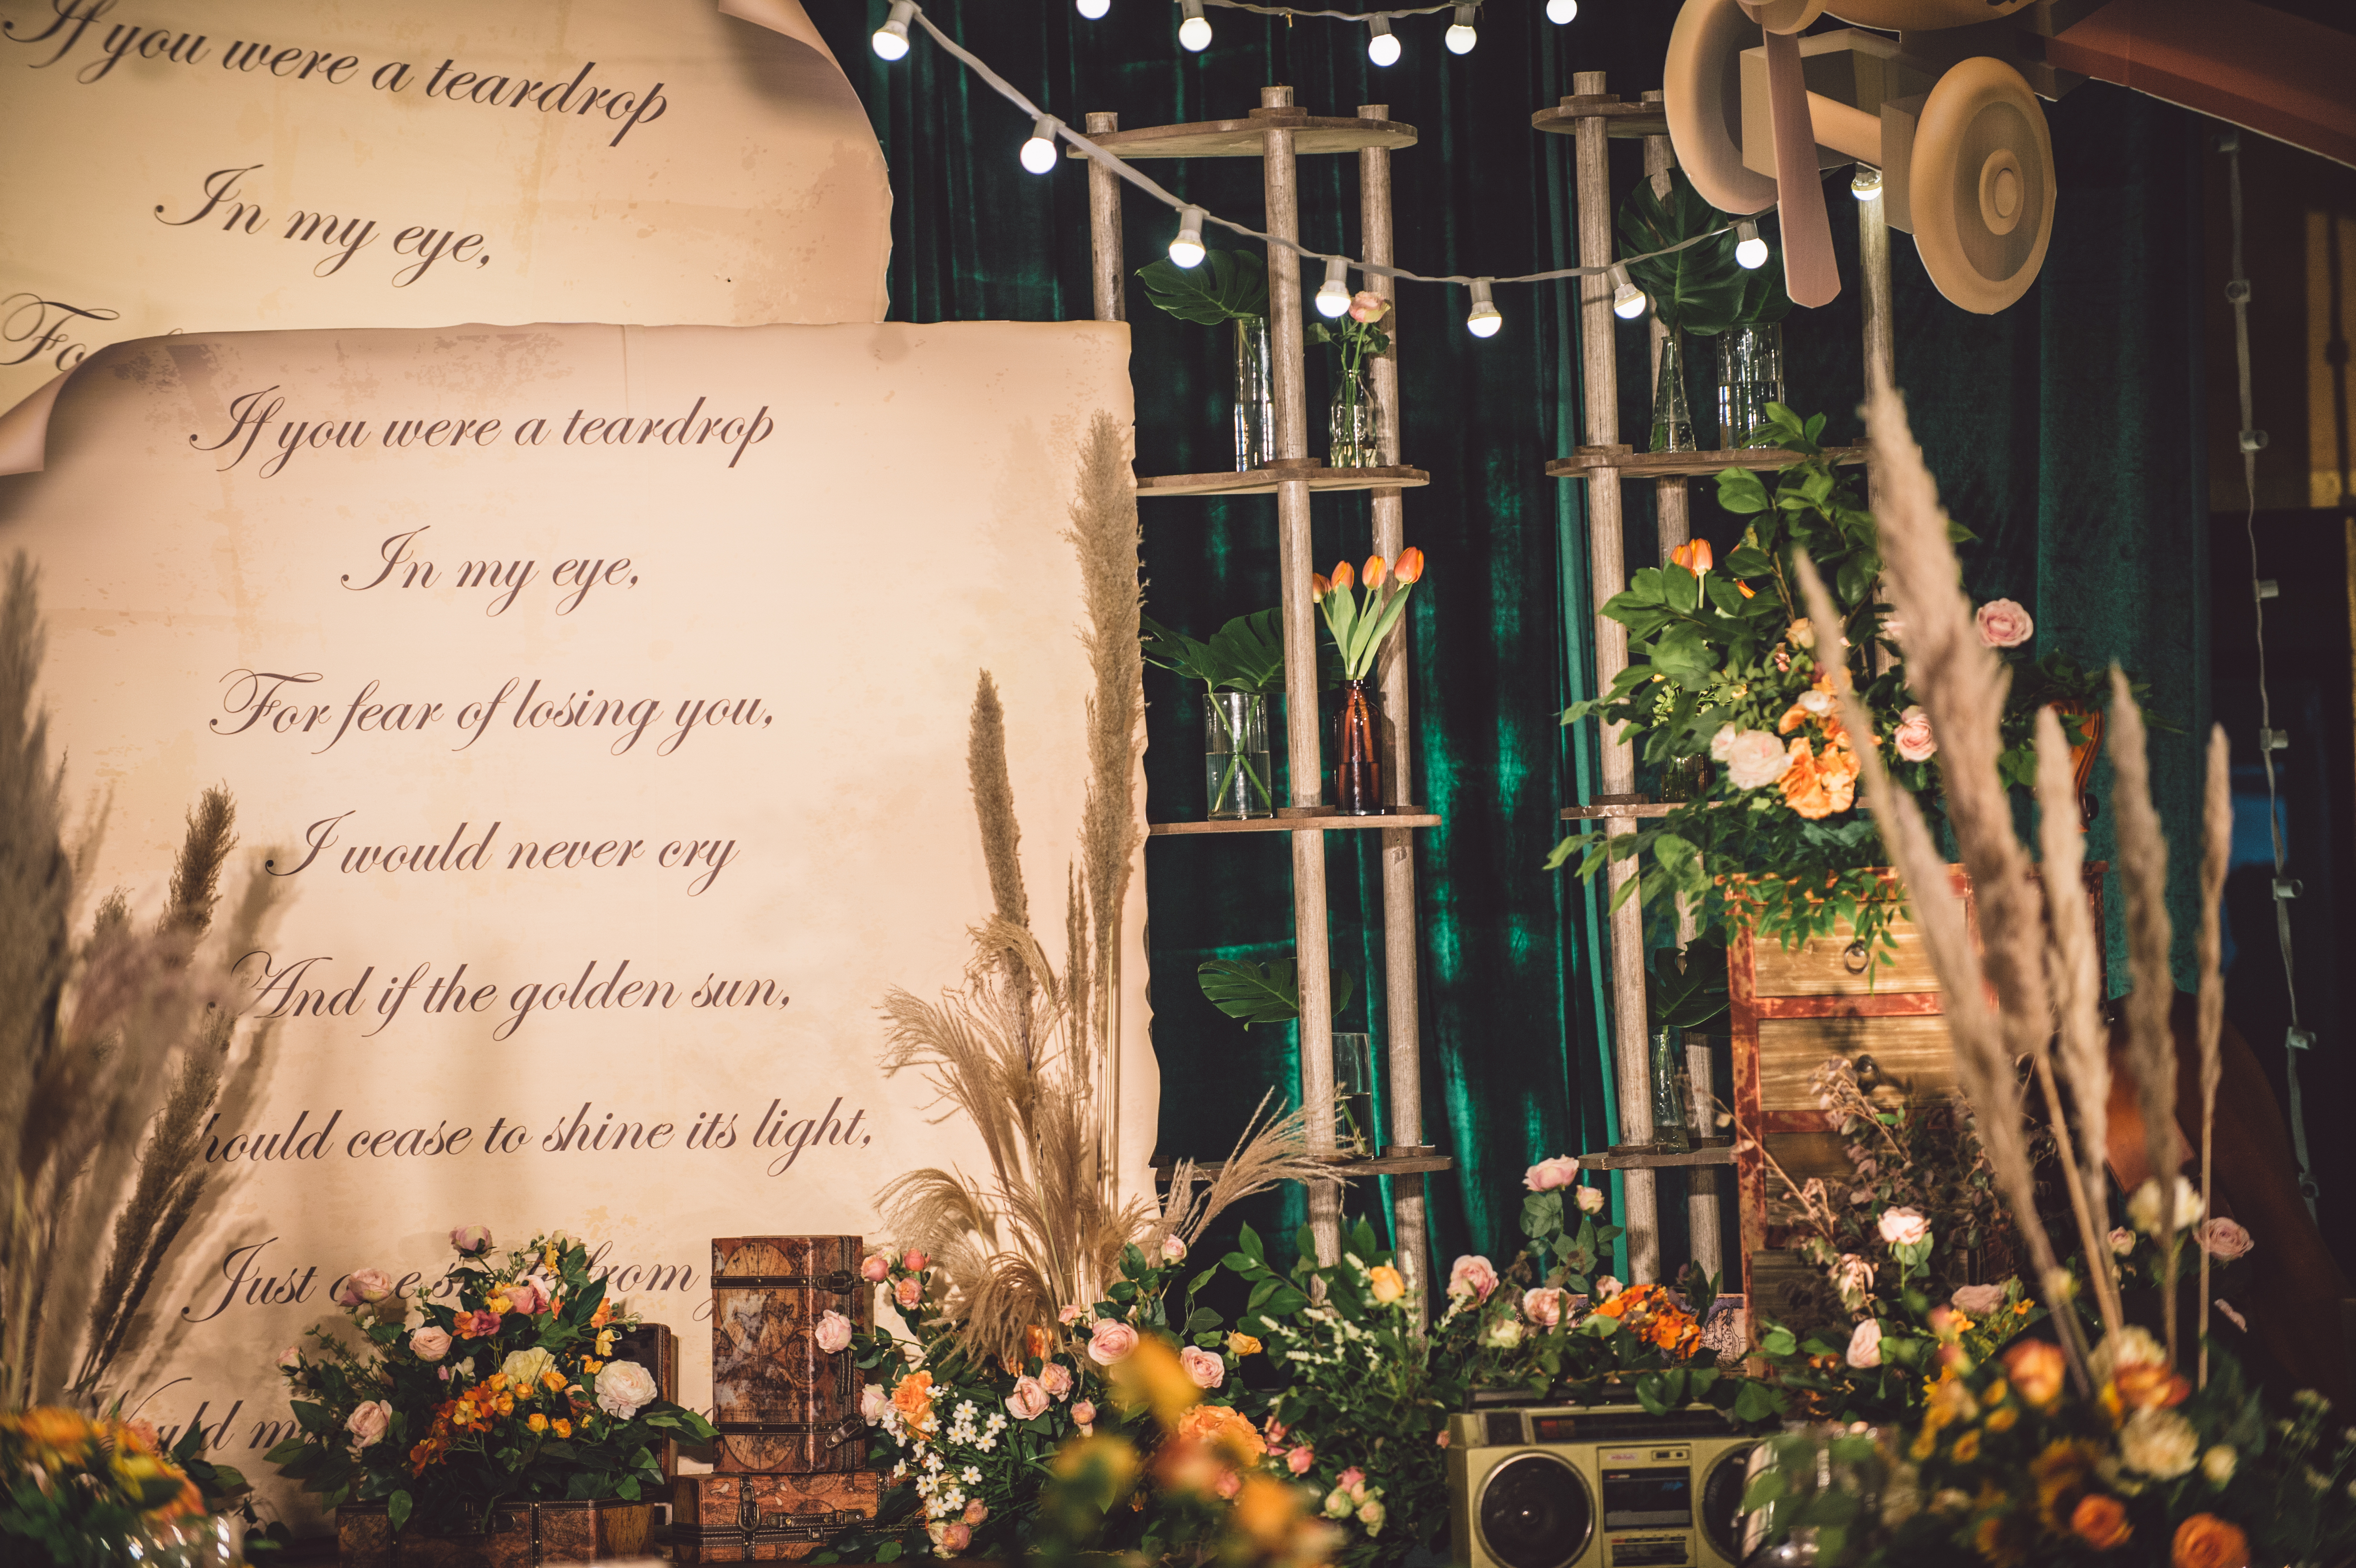 If you were a teardrop
In my eye,
If you were a teardrop
In my eye,
For fear of losing you,
I would never cry
And if the golden sun,
hould cease to shine its light,
Just from